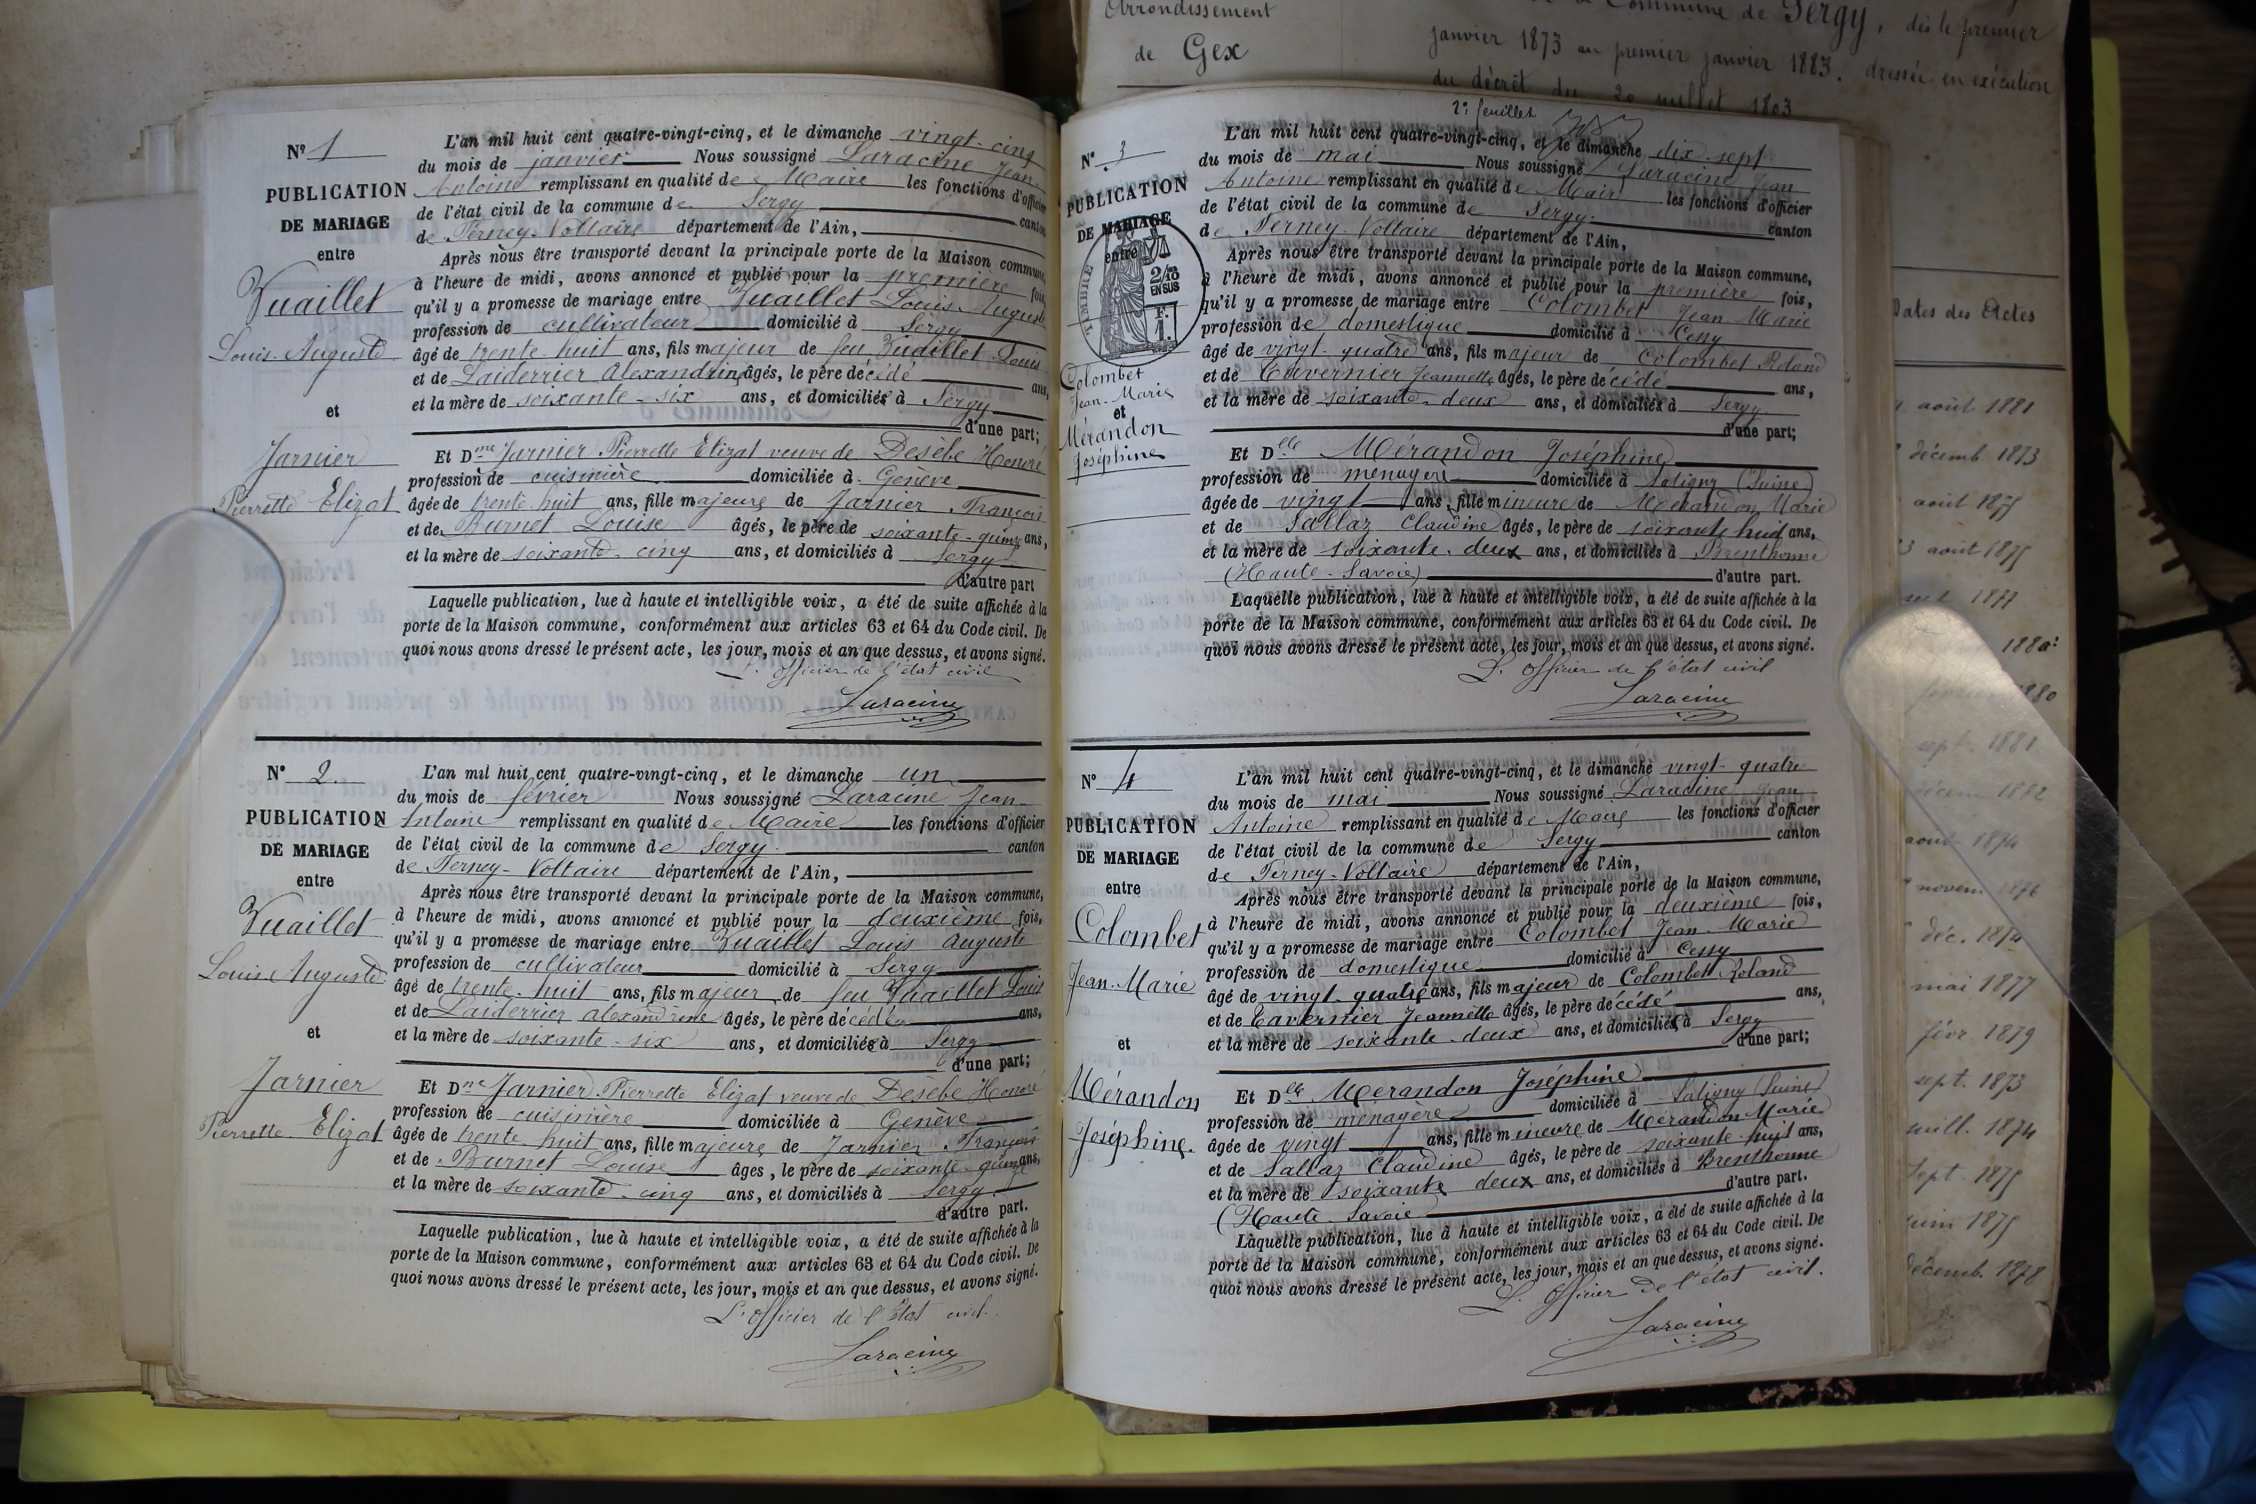 Arrondissement
de Gex
Commune de Sergy, dès le premier
janvier 1873 au premier janvier 1883. dressée en exécution
du décret du 20 juillet 1803
N° 1
PUBLICATION
DE MARIAGE
entre
Vuaillet
Louis Auguste
et
Jarnier
Pierrette Elizat
L'an mil huit cent quatre-vingt-cinq, et le dimanche vingt-cinq
du mois de janvier Nous soussigné Laracine Jean
Antoine remplissant en qualité de Maire les fonctions d'officier
de l'état civil de la commune de Sergy canton
de Ferney-Voltaire département de l'Ain,
Après nous être transporté devant la principale porte de la Maison commune,
à l'heure de midi, avons annoncé et publié pour la première fois,
qu'il y a promesse de mariage entre Vuaillet Louis Auguste
profession de cultivateur domicilié à Sergy
âgé de trente-huit ans, fils majeur de feu Vuaillet Louis
et de Laiderrier Alexandrine âgés, le père décédé ans,
et la mère de soixante-six ans, et domiciliés à Sergy
d'une part;
Et Dme Jarnier Pierrette Elizat veuve de Desèbe Honoré
profession de cuisinière domiciliée à Genève
âgée de trente huit ans, fille majeure de Jarnier François
et de Burnet Louise âgés, le père de soixante-quinze ans,
et la mère de soixante-cinq ans, et domiciliés à Sergy
d'autre part
Laquelle publication, lue à haute et intelligible voix, a été de suite affichée à la
porte de la Maison commune, conformément aux articles 63 et 64 du Code civil. De
quoi nous avons dressé le présent acte, les jour, mois et an que dessus, et avons signé.
L'officier de l'état civil
Laracine
N° 2.
PUBLICATION
DE MARIAGE
entre
Vuaillet
Louis Auguste
et
Jarnier
Pierrette Elizat
L'an mil huit cent quatre-vingt-cinq, et le dimanche un
du mois de février Nous soussigné Laracine Jean
Antoine remplissant en qualité de Maire les fonctions d'officier
de l'état civil de la commune de Sergy canton
de Ferney-Voltaire département de l'Ain,
Après nous être transporté devant la principale porte de la Maison commune,
à l'heure de midi, avons annoncé et publié pour la deuxième fois,
qu'il y a promesse de mariage entre Vuaillet Louis Auguste
profession de cultivateur domicilié à Sergy
âgé de trente-huit ans, fils majeur de feu Vuaillet Louis
et de Laiderrier Alexandrine âgés, le père décédé ans,
et la mère de soixante-six ans, et domiciliés à Sergy
d'une part;
Et Dme Jarnier Pierrette Elizat veuve de Desèbe Honoré
profession de cuisinière domiciliée à Genève
âgée de trente huit ans, fille majeure de Jarnier François
et de Burnet Louise âges, le père de soixante-quinze ans,
et la mère de soixante-cinq ans, et domiciliés à Sergy.
d'autre part.
Laquelle publication, lue à haute et intelligible voix, a été de suite affichée à la
porte de la Maison commune, conformément aux articles 63 et 64 du Code civil. De
quoi nous avons dressé le présent acte, les jour, mois et an que dessus, et avons signé.
L'officier de l'Etat civil.
Laracine
2e feuillet
N° 3
PUBLICATION
DE MARIAGE
entre
TIMBRE
2/10
EN SUS
F.
1.
Colombet
Jean-Marie
et
Mérandon
Joséphine
L'an mil huit cent quatre-vingt-cinq, et le dimanche dix-sept
du mois de mai Nous soussigné Laracine Jean
Antoine remplissant en qualité de Maire les fonctions d'officier
de l'état civil de la commune de Sergy. canton
de Ferney-Voltaire département de l'Ain,
Après nous être transporté devant la principale porte de la Maison commune,
à l'heure de midi, avons annoncé et publié pour la première fois,
qu'il y a promesse de mariage entre Colombet Jean Marie
profession de domestique domicilié à Cessy
âgé de vingt-quatre ans, fils majeur de Colombet Roland
et de Tavernier Jeannette âgés, le père décédé ans,
et la mère de soixante-deux ans, et domiciliés à Sergy
d'une part;
Et Dlle Mérandon Joséphine
profession de ménagère domiciliée à Satigny (Suisse)
âgée de vingt ans, fille mineure de Mérandon Marie
et de Sallaz Claudine âgés, le père de soixante huit ans,
et la mère de soixante-deux ans, et domiciliés à Brenthonne
(Haute-Savoie) d'autre part.
Laquelle publication, lue à haute et intelligible voix, a été de suite affichée à la
porte de la Maison commune, conformément aux articles 63 et 64 du Code civil. De
quoi nous avons dressé le présent acte, les jour, mois et an que dessus, et avons signé.
L'officier de l'état civil
Laracine
N° 4
PUBLICATION
DE MARIAGE
entre
Colombet
Jean-Marie
et
Mérandon
Joséphine.
L'an mil huit cent quatre-vingt-cinq, et le dimanche vingt-quatre
du mois de mai Nous soussigné Laracine Jean
Antoine remplissant en qualité de Maire les fonctions d'officier
de l'état civil de la commune de Sergy canton
de Ferney-Voltaire département de l'Ain,
Après nous être transporté devant la principale porte de la Maison commune,
à l'heure de midi, avons annoncé et publié pour la deuxième fois,
qu'il y a promesse de mariage entre Colombet Jean-Marie
profession de domestique domicilié à Cessy
âgé de vingt-quatre ans, fils majeur de Colombet Roland
et de Tavernier Jeannette âgés, le père décédé ans,
et la mère de soixante-deux ans, et domiciliés à Sergy
d'une part;
Et Dlle Mérandon Joséphine
profession de ménagère domiciliée à Satigny (Suisse)
âgée de vingt ans, fille mineure de Mérandon Marie
et de Sallaz Claudine âgés, le père de soixante-huit ans,
et la mère de soixante deux ans, et domiciliés à Brenthonne
(Haute-Savoie d'autre part.
Laquelle publication, lue à haute et intelligible voix, a été de suite affichée à la
porte de la Maison commune, conformément aux articles 63 et 64 du Code civil. De
quoi nous avons dressé le présent acte, les jour, mois et an que dessus, et avons signé.
L'officier de l'état civil.
Laracine
Dates des Actes
août 1881
décemb. 1873
août 1877
août 1875
1877
1880
1880
sept. 1881
1882
août 1874
novem 1876
déc. 1874
mai 1877
févr 1879
sept. 1873
juill. 1874
sept. 1875
juin 1875
décemb. 1878